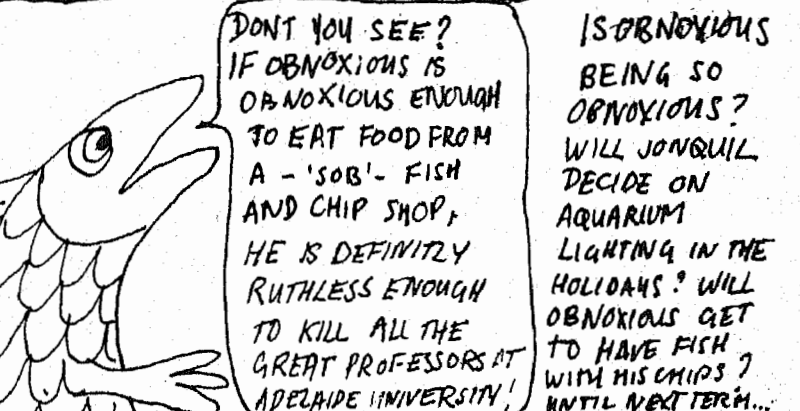 DONT YOU SEE?
IF OBNOXIOUS IS
OBNOXIOUS ENOUGH
TO EAT FOOD FROM
A - 'SOB' - FISH
AND CHIP SHOP,
HE IS DEFINITLY
RUTHLESS ENOUGH
TO KILL ALL THE
GREAT PROFESSORS AT
ADELAIDE UNIVERSITY!
IS OBNOXIOUS
BEING SO
OBNOXIOUS?
WILL JONQUIL
DECIDE ON
AQUARIUM
LIGHTING IN THE
HOLIDAYS? WILL
OBNOXIOUS GET
TO HAVE FISH
WITH HIS CHIPS?
UNTIL NEXT TERM...